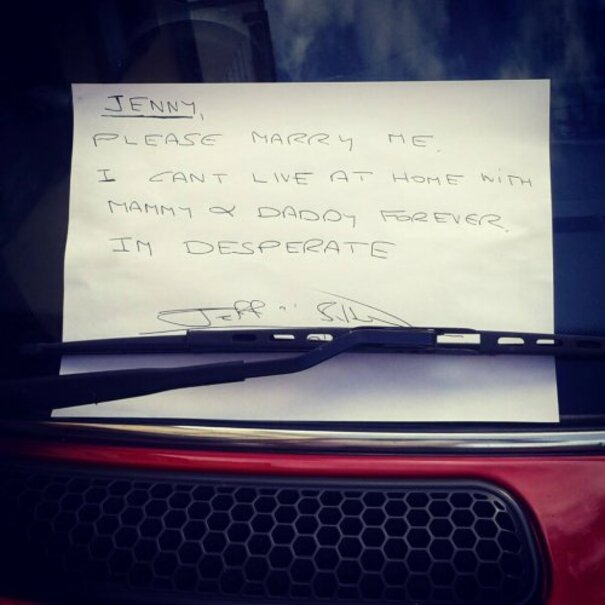 JENNY,
PLEASE MARRY ME.
I CANT LIVE AT HOME WITH
MAMMY & DADDY FOREVER.
IM DESPERATE
Jeff